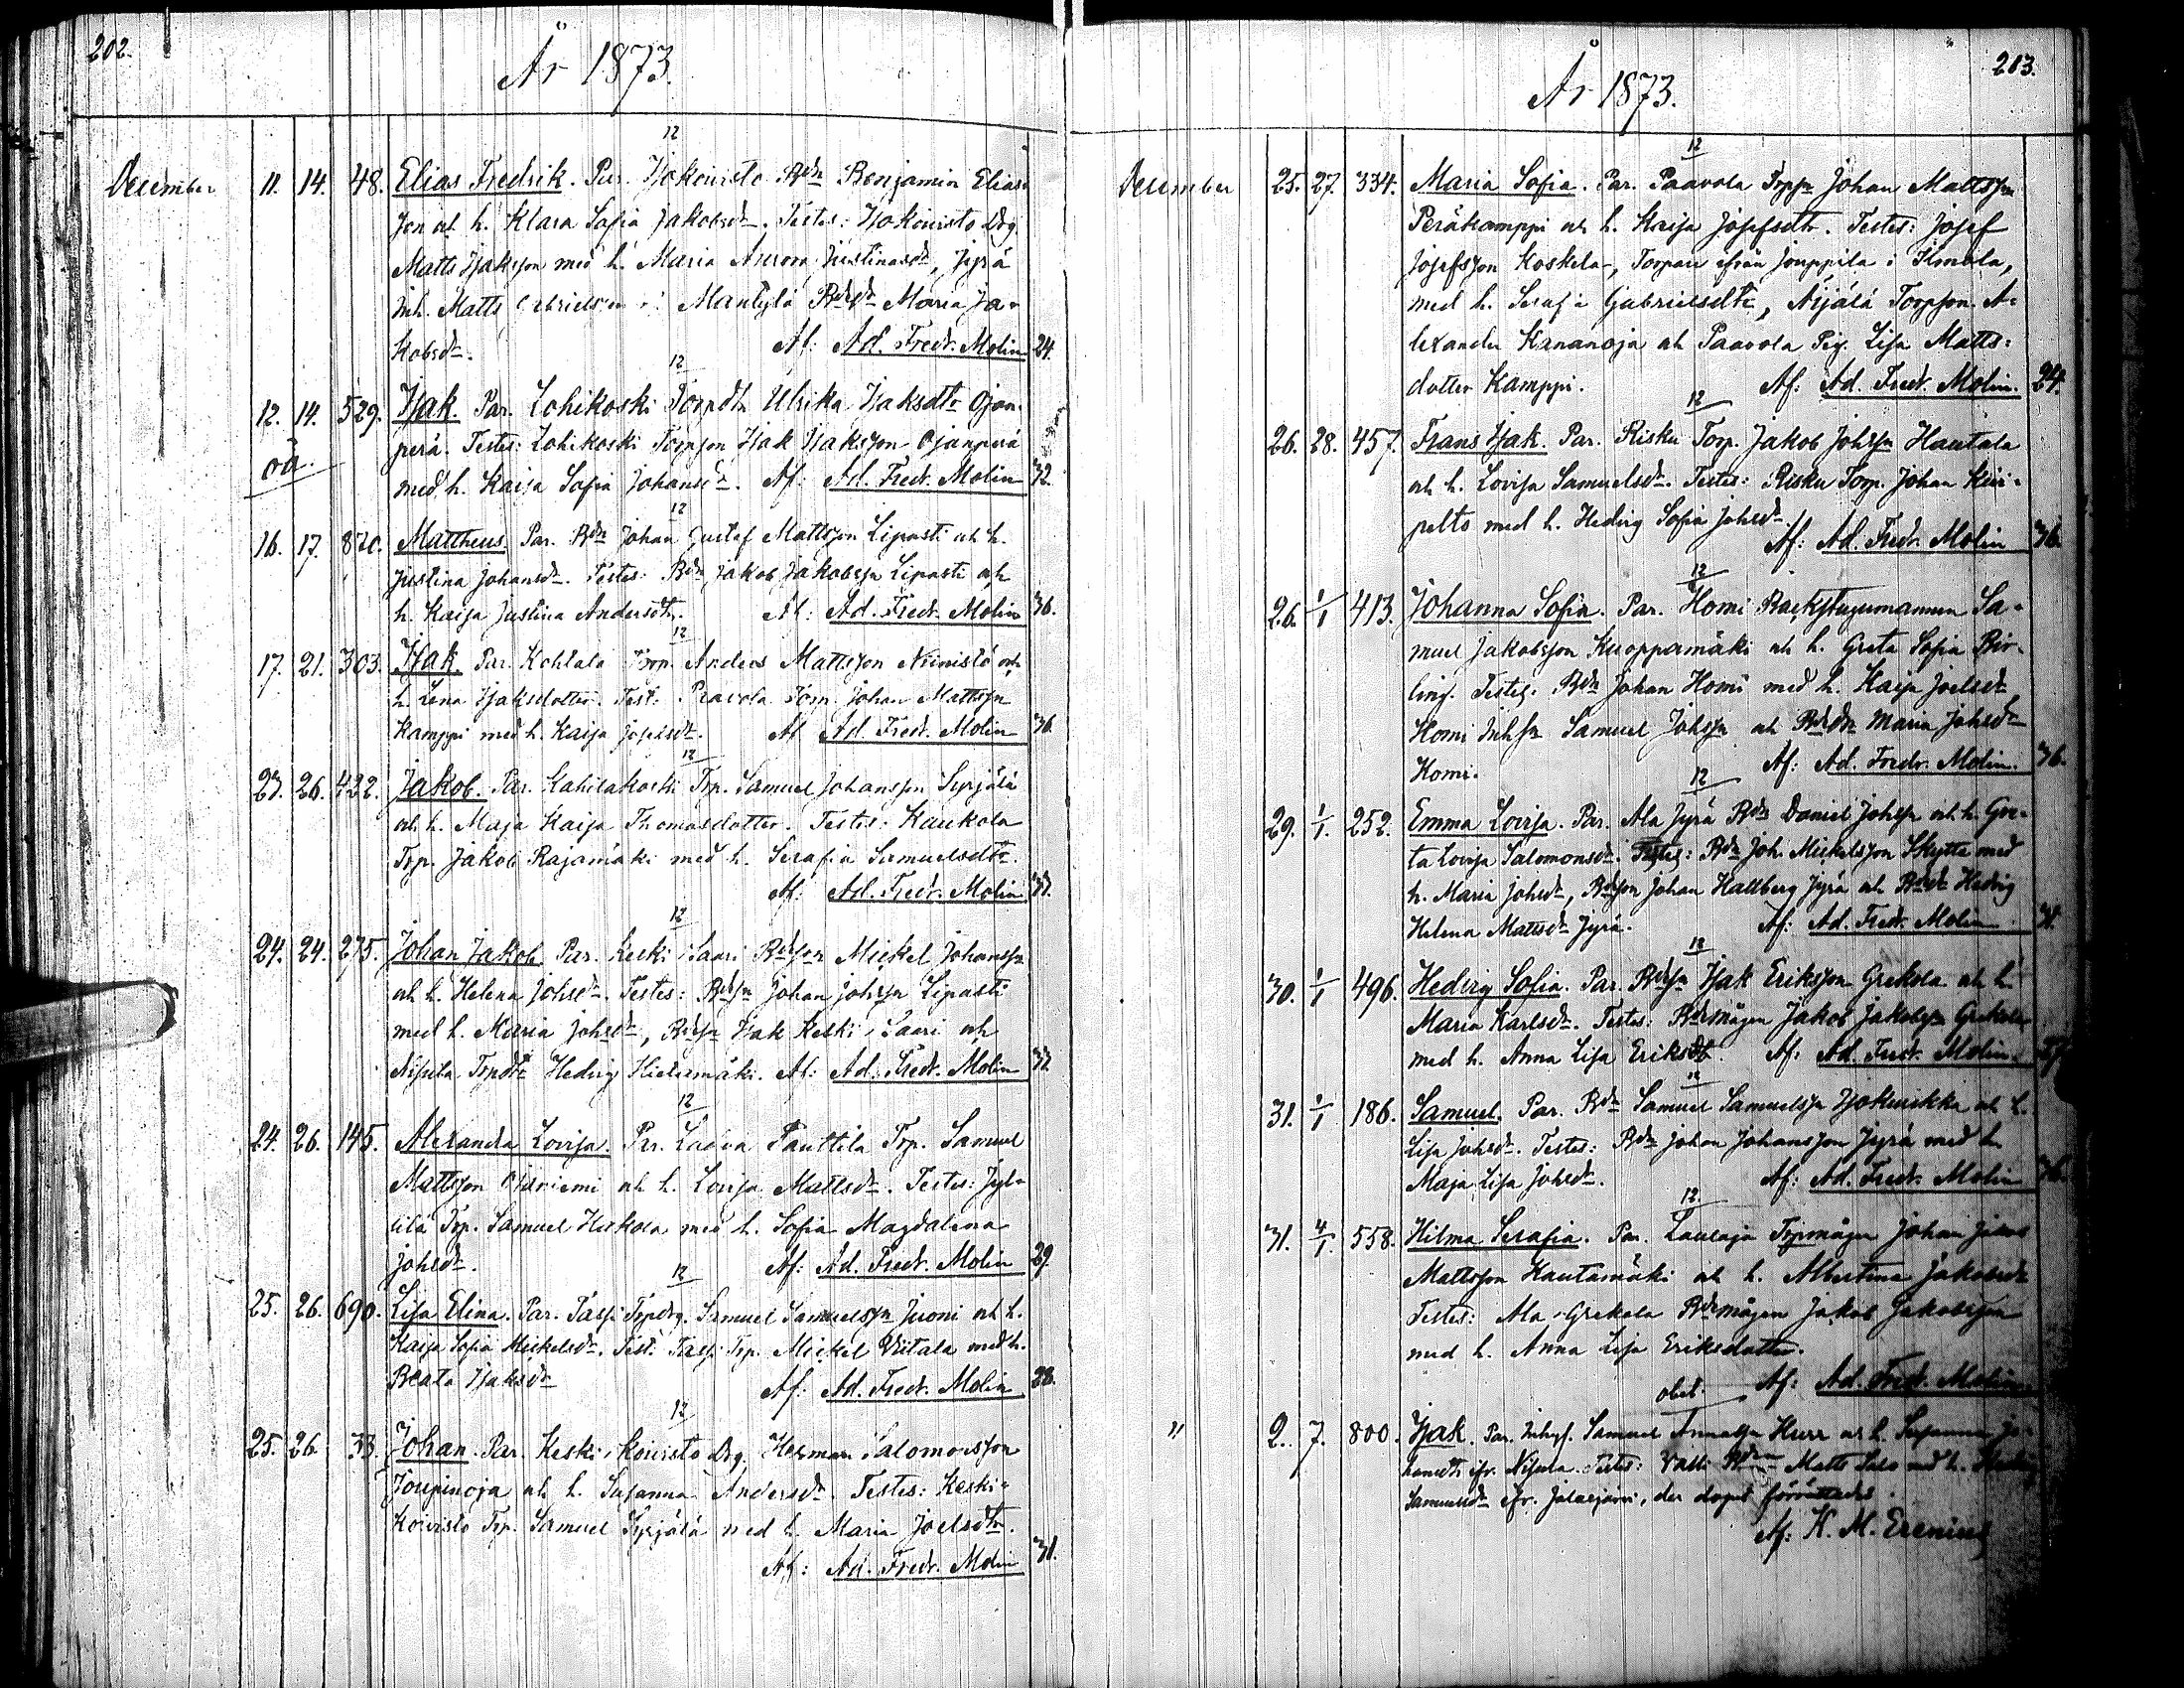 202.
År 1873.
12
December 11. 14. 48. Elias Fredrik. Par. Isokoivisto Bdn Benjamin Elias-
son och h. Klara Sofia Jakobsdr. Testes: Isokoivisto Drg.
Matts Isaksson med h. Maria Aurora Justinasdr, Jyrä
Inh. Matts Gabrielsson Mäntylä Bdedr Maria Ja-
kobsdr. Af: Ad. Fredr. Molin 24.
12
12. 14. 529. Isak. Par. Lohikoski Torpdtr Ulrika Isaksdtr Ojan-
oä. perä. Testes: Lohikoski Torpson Isak Isaksson Ojanperä
med h. Kaisa Sofia Johansdr. Af: Ad. Fredr. Molin 32.
12
16. 17. 820. Mattheus. Par. Bdn Johan Gustaf Mattsson Lipasti och h.
Justina Johansdr. Testes: Bdn Jakob Jakobsson Lipasti och
h. Kaisa Justina Andersdtr. Af: Ad. Fredr. Molin 36.
12
17. 21. 303. Isak. Par. Kohtala Torp. Anders Mattsson Niinistö och
h. Lena Isaksdotter. Test: Paavola Torp. Johan Mattsson
Kamppi med h. Kaisa Josefsdr. Af Ad. Fredr. Molin 36.
12
23. 26. 422. Jakob. Par. Kahilakoski Trp. Samuel Johansson Syrjälä
och h. Maja Kaisa Thomasdotter. Testes: Kaukola
Trp. Jakob Rajamäki med h. Serafia Samuelsdtr.
Af: Ad. Fredr. Molin 37.
12
24. 24. 275. Johan Jakob. Par. Keski Saari Bdson Mickel Johansson
och h. Helena Johsdr. Testes: Bdsn Johan Johsson Lipasti
med h. Maria Johsdr, Bdsn Isak Keski-Saari och
Nisula Trpdtr Hedvig Hietamäki. Af: Ad. Fredr. Molin 37.
12
24. 26. 145. Alexandra Lovisa. Par. Ladva Panttila Trp. Samuel
Mattsson Ojaniemi och h. Lovisa Mattsdr. Testes: Jyl-
lilä Trp. Samuel Heikola med h. Sofia Magdalena
Johsdr. Af: Ad. Fredr. Molin 29.
12
25. 26. 690. Lisa Elina. Par. Tassi Trpdrg. Samuel Samuelsson Juoni och h.
Kaisa Sofia Mickelsdr. Test: Tassi Trp. Mickel Viitala med h.
Beata Isaksdr Af: Ad. Fredr. Molin 28.
12
25. 26. 33. Johan. Par. Keski-koivisto Drg. Herman Salomonsson
Joupinoja och h. Susanna Andersdr. Testes: Keski-
Koivisto Trp. Samuel Syrjälä med h. Maria Joelsdtr.
Af: Ad. Fredr. Molin 31.
203.
År 1873.
12
December 25. 27. 334. Maria Sofia. Par. Paavola Torpn Johan Mattsson
Peräkamppi och h. Kaisa Josefsdtr. Testes: Josef
Josefsson Koskela, Torpare ifrån Jouppila i Ilmola,
med h. Serafia Gabrielsdtr, Äijälä Torpson A-
lexander Kananoja och Paavola Pig. Lisa Matts-
dotter Kamppi. Af: Ad. Fredr. Molin. 24.
12
26. 28. 457. Frans Isak. Par. Risku Torp. Jakob Johsson Hautala
och h. Lovisa Samuelsdr. Testes: Risku Torp. Johan Kivi-
pelto med h. Hedvig Sofia Johsdr.
Af: Ad. Fredr. Molin 36.
12
26. 1/1 413. Johanna Sofia. Par. Homi Backstugumannen Sa-
muel Jakobsson Kuoppamäki och h. Greta Sofia Bir-
ling. Testes: Bdn Johan Homi med h. Kaisa Joelsdr
Homi Inhsn Samuel Johsson och Bdedtr Maria Johsdr
Homi. Af: Ad. Fredr. Molin. 36.
12
29. 1/1. 252. Emma Lovisa. Par. Ala Jyrä Bdn Daniel Johsson och h. Gre-
ta Lovisa Salomonsdr. Testes: Bdn Joh. Mickelsson Skytte med
h. Maria Johsdr, Bdson Johan Hallberg Jyrä och Bdedr Hedvig
Helena Mattsdr Jyrä. Af: Ad. Fredr. Molin 31.
12
30. 1/1 496. Hedvig Sofia. Par. Bdsn Isak Eriksson Grekola och h.
Maria Karlsdr. Testes: Bdmågen Jakob Jakobsson Grekola
med h. Anna Lisa Eriksdtr. Af: Ad. Fredr. Molin.
12
31. 1/1 186. Samuel. Par. Bdn Samuel Samuelsson Isokuikka och h.
Lisa Johsdr. Testes: Bdn Johan Johansson Jyrä med h.
Maja Lisa Johsdr. Af: Ad. Fredr. Molin 36.
12
31. 4/1. 558. Hilma Serafia. Par. Laulaja Trpmågen Johan
Mattsson Rautamäki och h. Albertina Jakobsdr
Testes: Ala-Grekola Bdmågen Jakob Jakobsson
med h. Anna Lisa Eriksdotter.
obet. Af: Ad. Fredr. Molin
" 2. 7. 800. Isak. Par. Inhys. Samuel Hurr och h. Susanna Jo-
hansdtr ifr. Nisula. Testes: Matts Salo med h. Hedvig
Samuelsdr ifr. Jalasjärvi, der dopet förrättades.
Af: K. M. Erenius